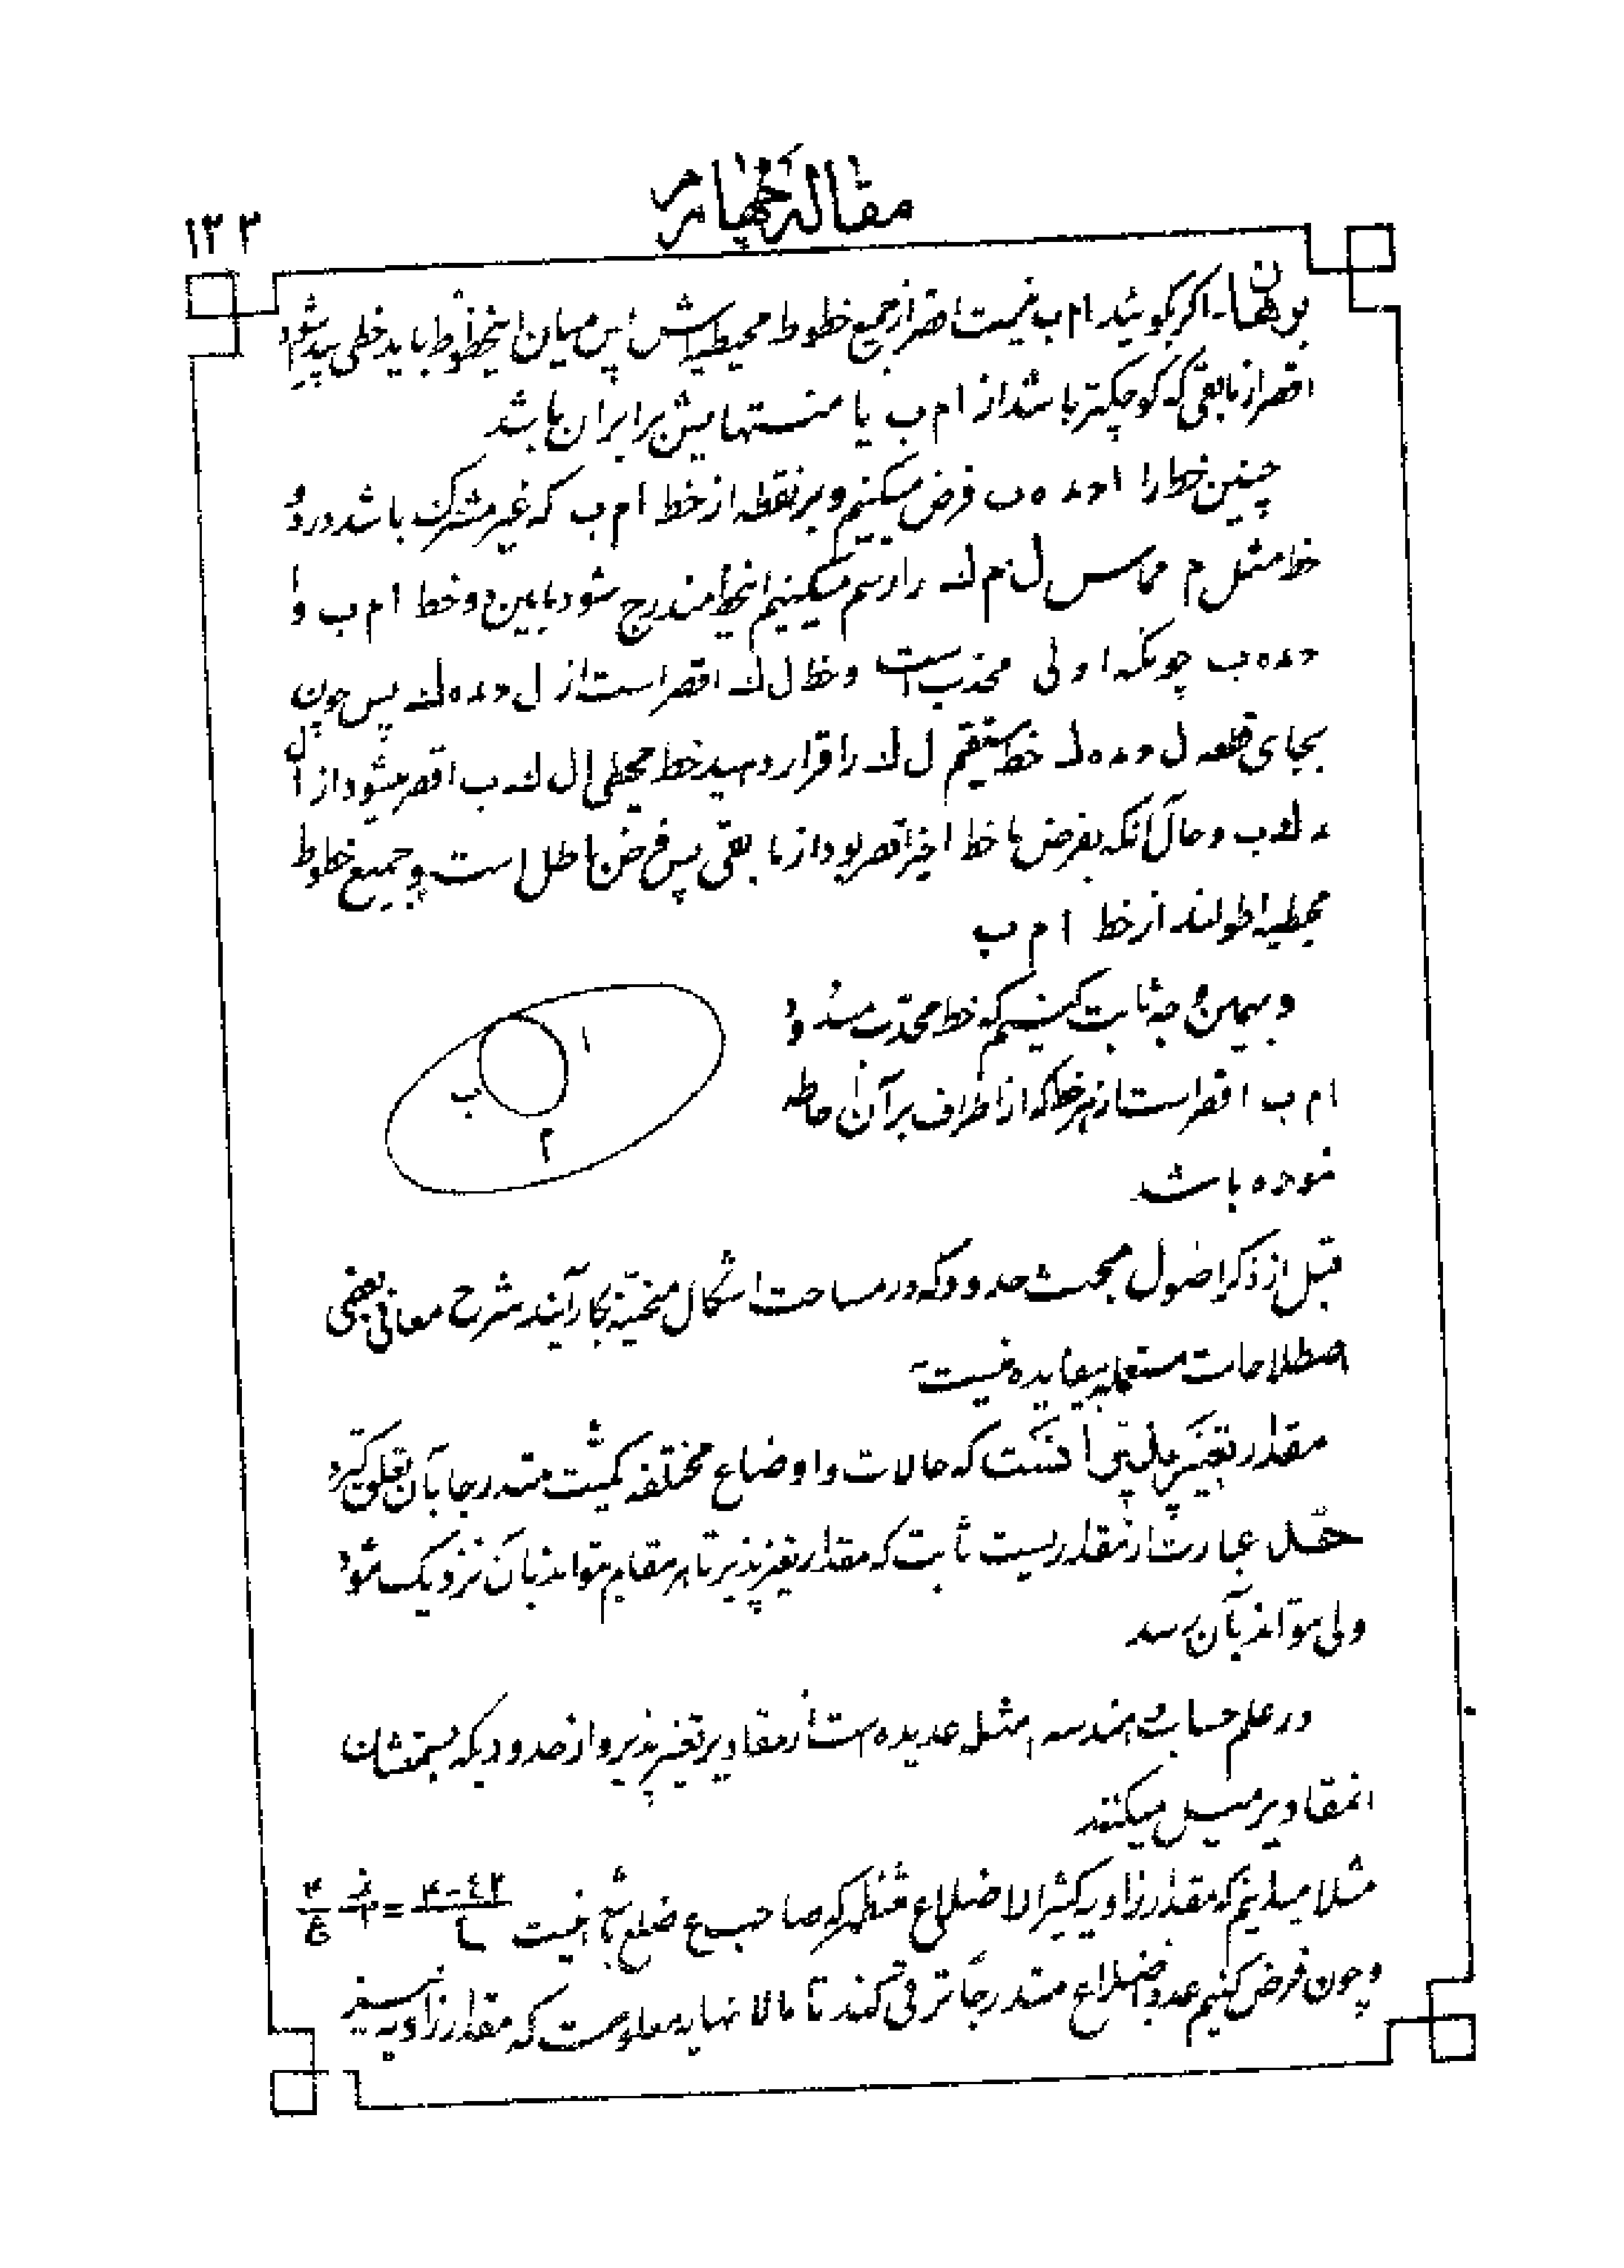 مقالهٔ چهارم
۱۳۳
برهان - اکر بکوئید ام ب نیست اقصر از جمیع خطوط محیطیه‌اش پس میان اینخطوط باید خطی پیدا شود
اقصر از مابقی که کوچکتر باشد از ام ب یا منتهایش برابر ان باشد
چنین خط را ا ح د ه ب فرض میکنیم و بر نقطه از خط ام ب که غیر مشترک باشد در دو
خط مثل م مماس ل م ک را رسم میکنیم اینخط مندرج شود مابین دو خط ام ب و ا
ح د ه ب چونکه اولی محدب است و خط ل ک اقصر است از ل ح د ه ک پس چون
بجای قطعه ل ح د ه ک خط مستقیم ل ک را قرار دهید خط محیطی ا ل ک ب اقصر میشود از ا ل
ه ک ب و حال آنکه بفرض ما خط اخیر اقصر بود از مابقی پس فرض باطل است و جمیع خطوط
محیطیه اطولند از خط ام ب
و بهمین وجه ثابت کنیم که خط محدب مسدود
ام ب اقصر است از هر خط که از اطراف بر آن احاطه
نموده باشد
ا
ب
م
قبل از ذکر اصول مبحث حدود که در مساحت اشکال منحنیه بکار آیند شرح معانی بعضی
اصطلاحات مستعمله بیفایده نیست
مقدار تغییر پذیر آنست که حالات و اوضاع مختلفه کمیت متدرجا بآن تعلق کیرد
حد عبارت از مقداریست ثابت که مقدار تغییر پذیر تا هر مقام تواند بآن نزدیک شود
ولی نتواند بآن رسد
در علم حساب و هندسه امثله عدیده است از مقادیر تغییر پذیر و از حدودیکه بسمتشان
انمقادیر میل میکنند
مثلا میدانیم که مقدار زاویه کثیر الاضلاع منتظم که صاحب ع ضلع باشد
و چون فرض کنیم عدد اضلاع متدرجاً ترقی کند تا مالانهایه معلومست که مقدار زاویه